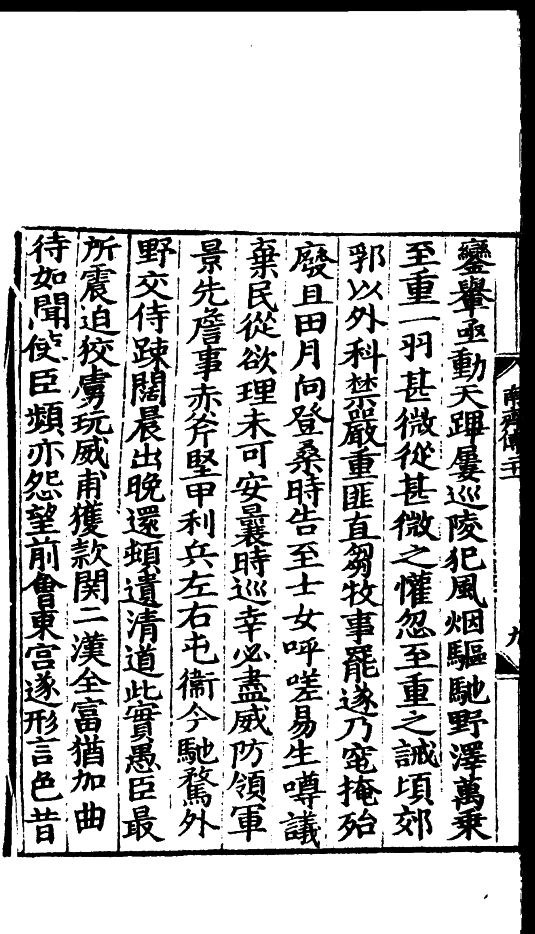 南齊傳二十一
九
鑾轝亟動天蹕屢巡陵犯風烟驅馳野澤萬乗
至重一羽甚微從甚微之懽忽至重之誡頃郊
郛以外科禁嚴重匪直芻牧事罷遂乃窀掩殆
廢且田月向登桑時告至士女呼嗟易生噂議
棄民從欲理未可安曩時巡幸必盡威防領軍
景先詹事赤斧堅甲利兵左右屯衞今馳騖外
野交侍踈闊晨出晚還頻遺清道此實愚臣最
所震迫狡虜玩威甫獲款関二漢全富猶加曲
待如聞使臣頻亦怨望前會東宫遂形言色昔